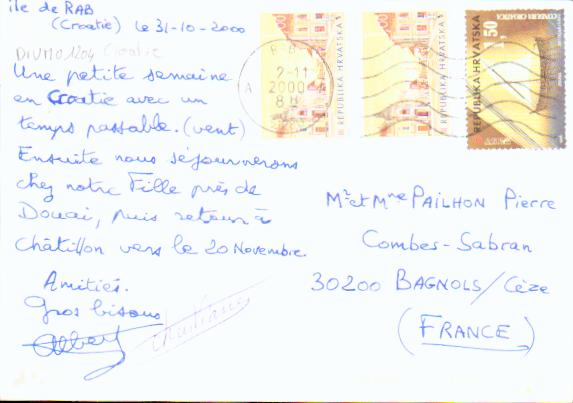 île de RAB
(Croatie) le 31-10-2000
DIVM01204 Croatie
Une petite semaine
en Croatie avec un
temps passable. (vent)
Ensuite nous séjournerons
chez notre Fille près de
Douai, puis retour à
Châtillon vers le 20 Novembre.
Amitiés.
Gros bisous
Albert Christiane
2-11
2000
8H
A
REPUBLIKA HRVATSKA
REPUBLIKA HRVATSKA
REPUBLIKA HRVATSKA
1.50
Mr et Mme PAILHON Pierre
Combes-Sabran
30200 BAGNOLS/Cèze
(FRANCE)